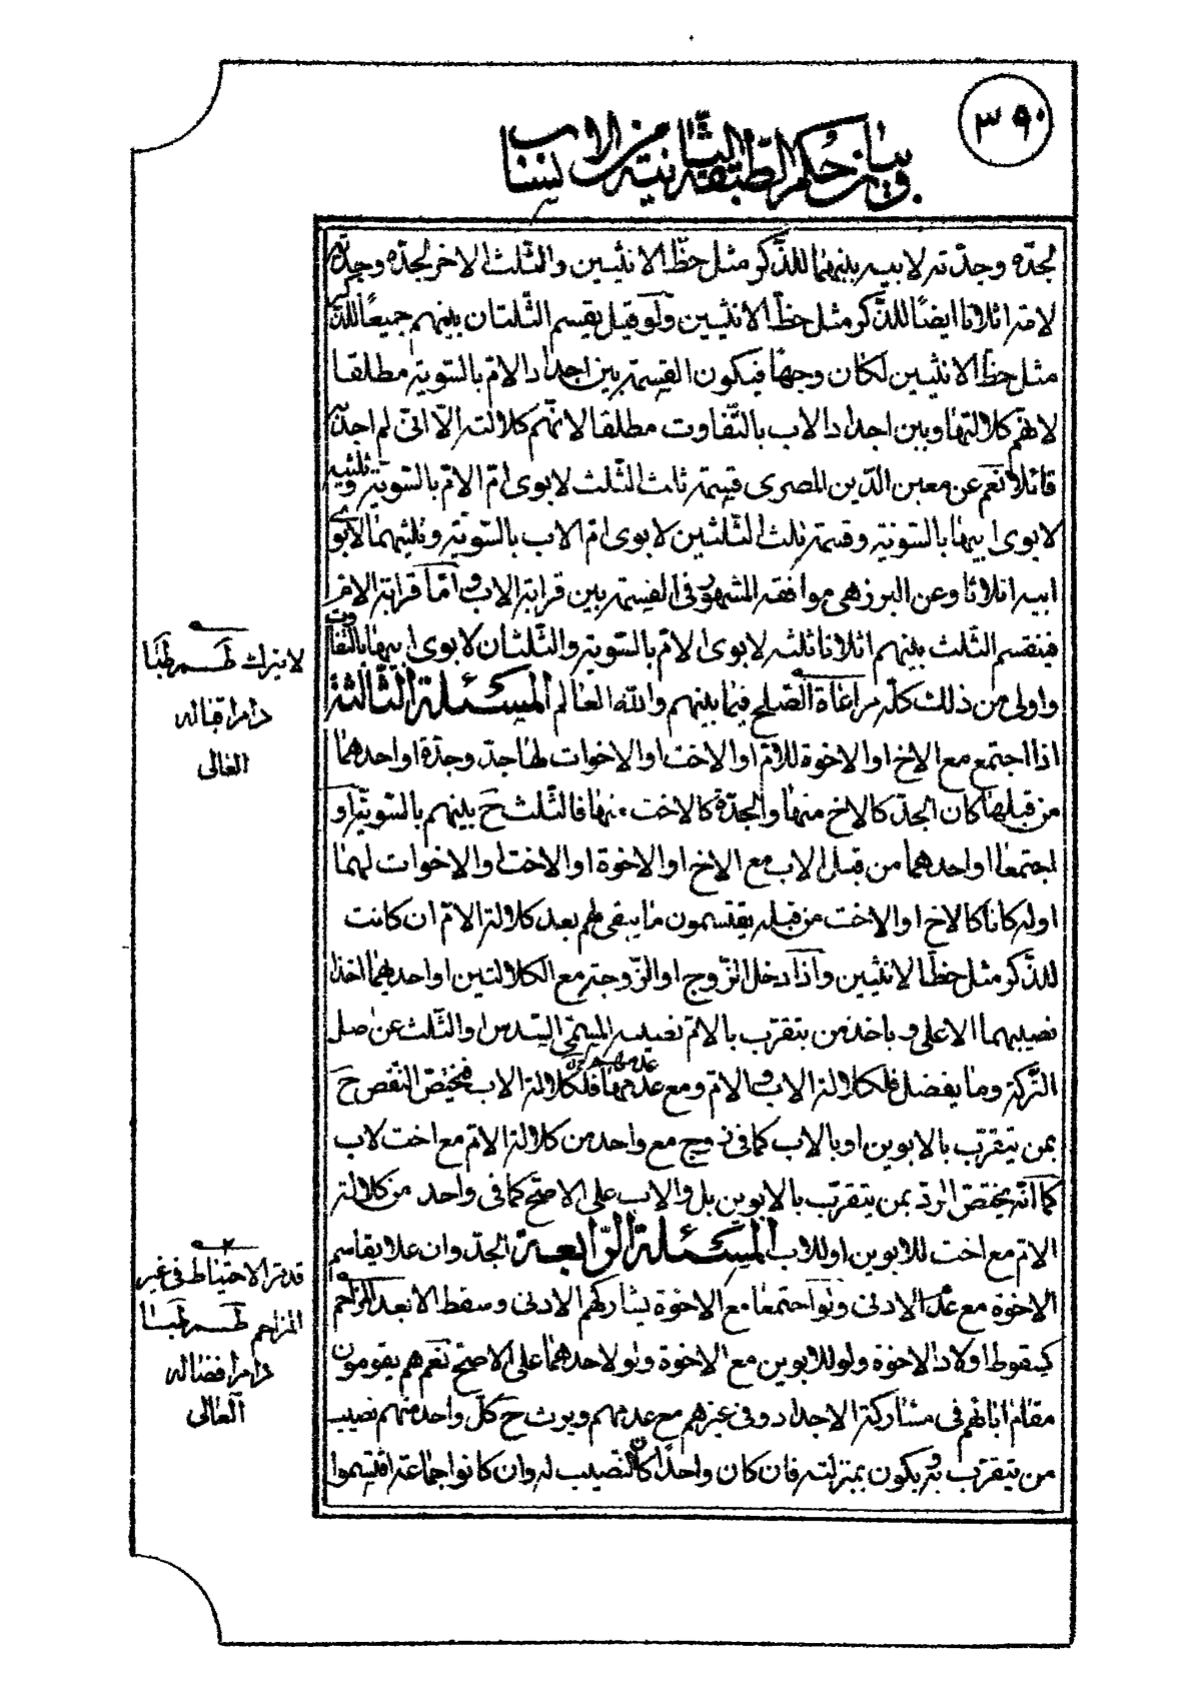 ٣٩٠
في بيان حكم الطبقة الثانية من الانساب
لجدّه وجدّته لابيه بينهما للذّكر مثل حظّ الانثيين والثّلث الاخر لجدّه وجدّته
لامّه اثلاثا ايضًا للذّكر مثل حظّ الانثيين ولو قيل بقسم الثّلثان بينهم جميعًا للذّكر
مثل حظّ الانثيين لكان وجهًا فيكون القسمة بين اجداد الامّ بالسّوية مطلقا
لانّهم كلالتها وبين اجداد الاب بالتّفاوت مطلقا لانّهم كلالته الّا انّى لم اجد به
قائلا نعم عن معين الدّين المصرى قسمة ثلث الثّلث لابوى امّ الامّ بالسّوية وثلثيه
لابوى ابيها بالسّوية وقسمة ثلث الثّلثين لابوى امّ الاب بالسّويّة وثلثيهما لابوى
ابيه اثلاثا وعن البرزهى موافقه المشهور فى القسمة بين قرابة الاب وامّا قرابة الامّ
فينقسم الثّلث بينهم اثلاثا ثلثه لابوى الامّ بالسّوية والثّلثان لابوى ابيها بالتّفاوت
واولى من ذلك كلّه مراعاة الصّلح فيما بينهم والله العالم المسئلة الثّالثة
اذا اجتمع مع الاخ او الاخوة للامّ او الاخت او الاخوات لها جدّ وجدّة او احدهما
من قبلها كان الجدّ كالاخ منها والجدّة كالاخت منها فالثّلث ح بينهم بالسّوية او
اجتمعا او احدهما من قبل الاب مع الاخ او الاخوة او الاخت او الاخوات لهما
او له كانا كالاخ او الاخت من قبله يقتسمون ما يبقى لهم بعد كلالة الامّ ان كانت
للذّكر مثل حظّ الانثيين واذا دخل الزّوج او الزّوجة مع الكلالتين او احديهما اخذا
نصيبهما الاعلى وياخذ من يتقرّب بالامّ نصيبه المسمّى السّدس او الثّلث عن اصل
التّركة وما يفضل فلكلالة الاب والامّ ومع عدمها فلكلالة الاب فيختصّ النّقص ح
بمن يتقرّب بالابوين او بالاب كما فى زوج مع واحد من كلالة الامّ مع اخت لاب
كما انّه يختصّ الردّ بمن يتقرّب بالابوين بل والاب على الاصحّ كما فى واحد من كلالة
الامّ مع اخت للابوين او للاب المسئلة الرّابعة الجدّ وان علا يقاسم
الاخوة مع عدم الادنى ولو اجتمعا مع الاخوة يشاركهم الادنى وسقط الابعد المزاحم
كسقوط اولاد الاخوة ولو للابوين مع الاخوة ولو لاحدهما على الاصحّ نعم هم يقومون
مقام ابائهم فى مشاركة الاجداد وفى غيرهم مع عدمهم ويرث ح كلّ واحد منهم نصيب
من يتقرّب به ويكون بمنزلته فان كان واحدًا كان النّصيب له وان كانوا جماعة اقتسموا
لا يترك
دام اقباله
العالى
الاحتياط فى غير
المزاحم
دام افضاله
العالى